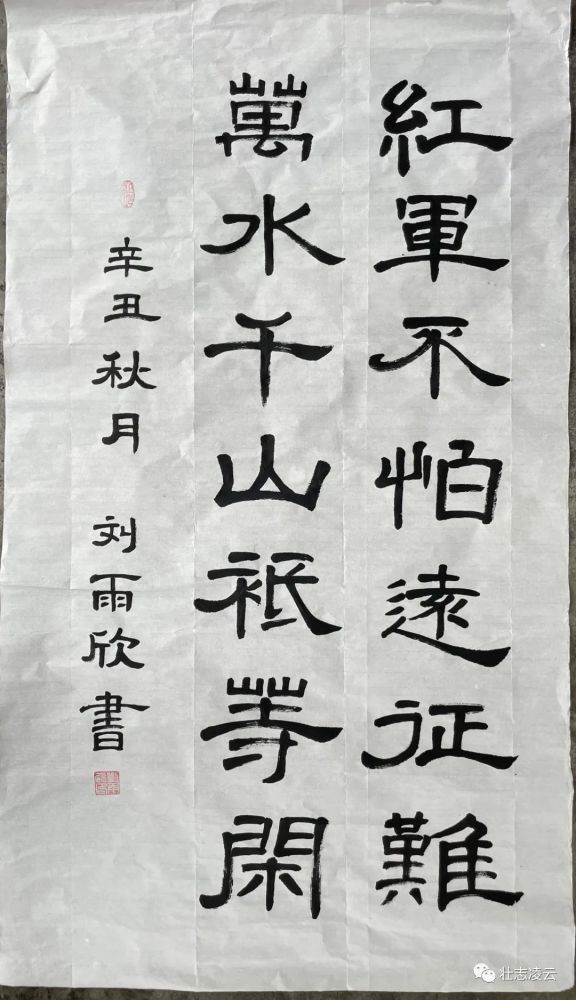 紅軍不怕遠征難
萬水千山祗等閑
辛丑秋月 刘雨欣書
壮志凌云